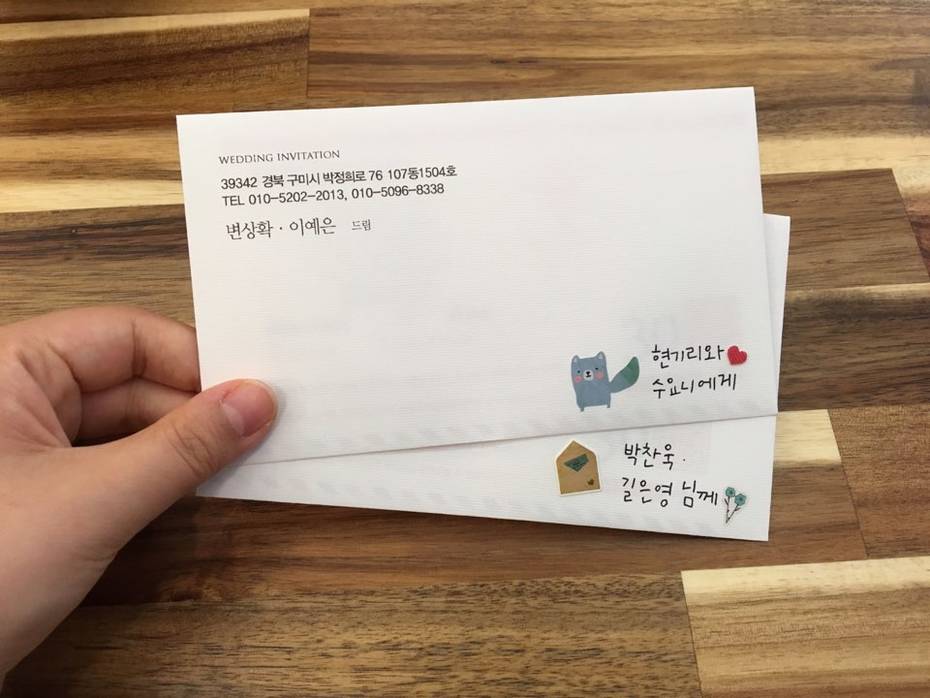 WEDDING INVITATION
39342 경북 구미시 박정희로 76 107동1504호
TEL 010-5202-2013, 010-5096-8338
변상확 · 이예은 드림
현기리와
수요니에게
박찬욱.
길은영 님께